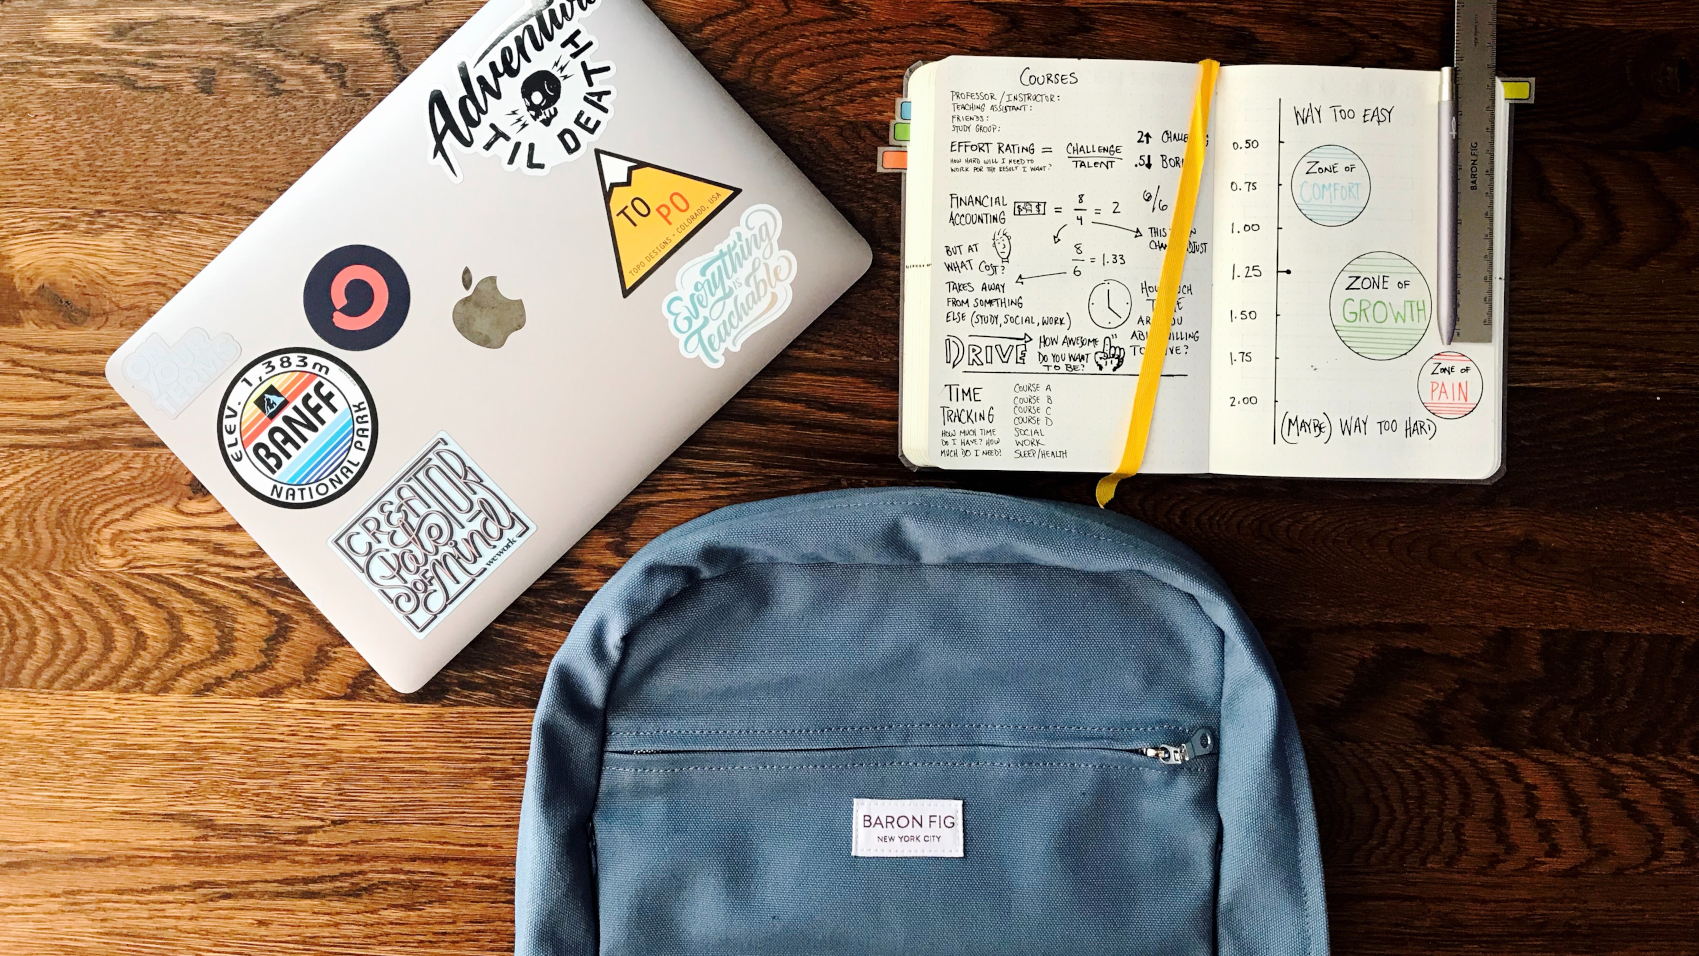 Adventure
'TIL DEATH
TO PO
TOPO DESIGNS • COLORADO, USA
Everything
IS
Teachable
ELEV. 1,383m
BANFF
NATIONAL PARK
CREATOR
Pals
OF
Mind
wework
COURSES
PROFESSOR/INSTRUCTOR:
TEACHING ASSISTANT:
FRIENDS:
STUDY GROUP:
EFFORT RATING = CHALLENGE
TALENT
HOW HARD WILL I NEED TO
WORK FOR THE RESULT I WANT?
2↑
.5↓
FINANCIAL
ACCOUNTING
$ = 8/4 = 2
8/6 = 1.33
BUT AT
WHAT COST?
TAKES AWAY
FROM SOMETHING
ELSE (STUDY, SOCIAL, WORK)
DRIVE
HOW AWESOME
DO YOU WANT
TO BE?
TIME
TRACKING
HOW MUCH TIME
DO I HAVE? HOW
MUCH DO I NEED?
COURSE A
COURSE B
COURSE C
COURSE D
SOCIAL
WORK
SLEEP/HEALTH
WAY TOO EASY
0.50
0.75
1.00
1.25
1.50
1.75
2.00
ZONE OF
COMFORT
ZONE OF
GROWTH
ZONE OF
PAIN
(MAYBE) WAY TOO HARD
BARON FIG
BARON FIG
NEW YORK CITY